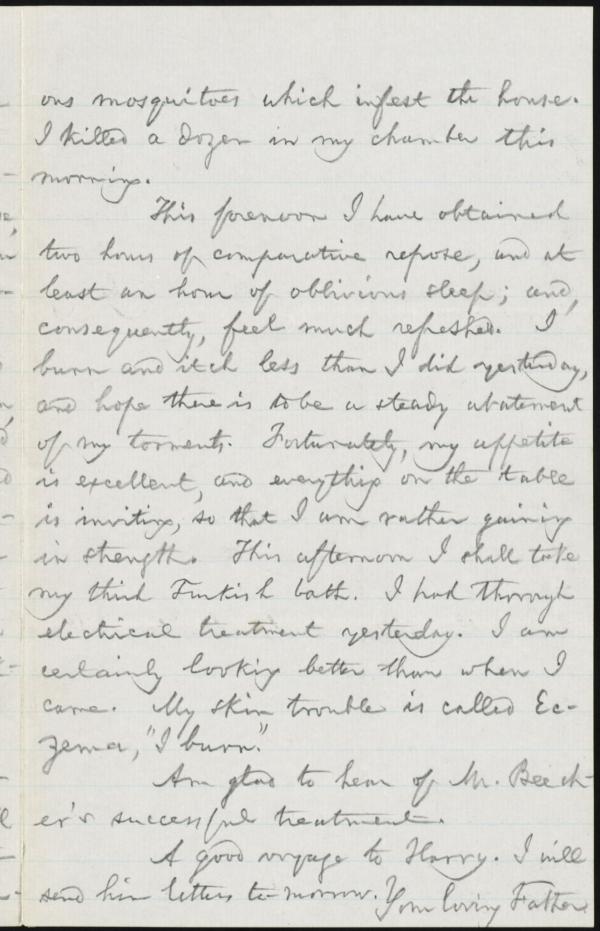 ous mosquitoes which infest the house.
I killed a dozen in my chamber this
morning.
This forenoon I have obtained
two hours of comparative repose, and at
least an hour of oblivious sleep; and,
consequently, feel much refreshed. I
burn and itch less than I did yesterday,
and hope there is to be a steady abatement
of my torments. Fortunately, my appetite
is excellent, and everything on the table
is inviting, so that I am rather gaining
in strength. This afternoon I shall take
my third Turkish bath. I had thorough
electrical treatment yesterday. I am
certainly looking better than when I
came. My skin trouble is called Ec-
zema, "I burn."
Am glad to hear of Mr. Beech-
er's successful treatment.
A good voyage to Harry. I will
send him letters to-morrow. Your loving Father